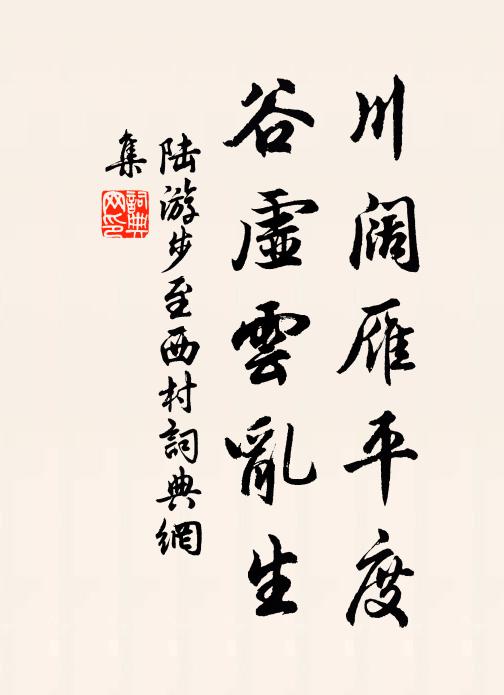 川阔雁平度
谷虛雲亂生
陆游步至西村詞典網
集
詞典網印